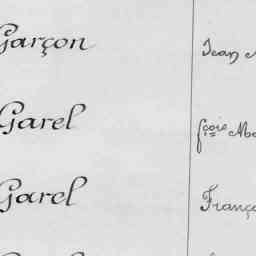 Garçon Jean
Garel fçois
Garel